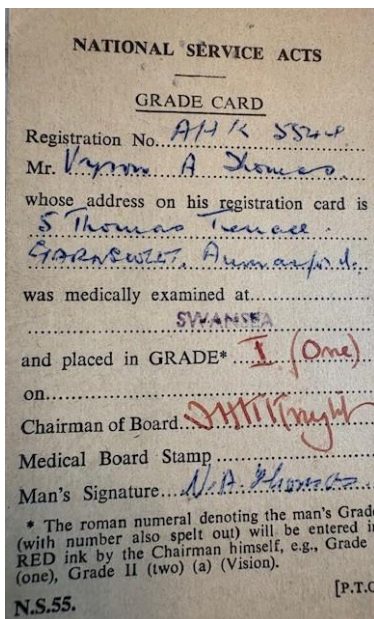 NATIONAL SERVICE ACTS
GRADE CARD
Registration No. AHK 5548
Mr. Vyson A Thomas
whose address on his registration card is
5 Thomas Terrace
GARNSWLLT, Ammanford.
was medically examined at
SWANSEA
and placed in GRADE* I (One)
on
Chairman of Board Knight
Medical Board Stamp
Man's Signature A Thomas
* The roman numeral denoting the man's Grade
(with number also spelt out) will be entered in
RED ink by the Chairman himself, e.g., Grade
(one), Grade II (two) (a) (Vision).
[P.T.O
N.S.55.